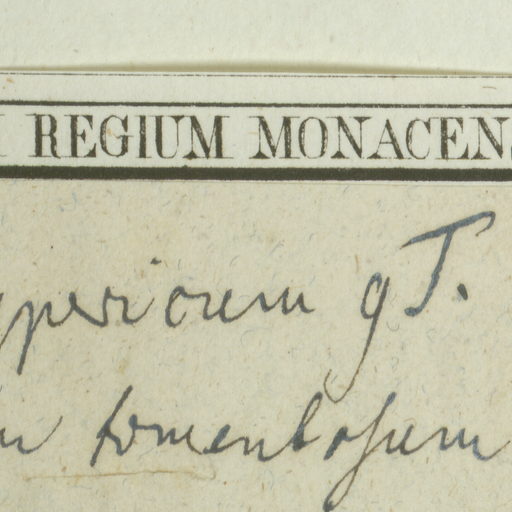 REGIUM MONACENS
ypericum gT.
tomentosum